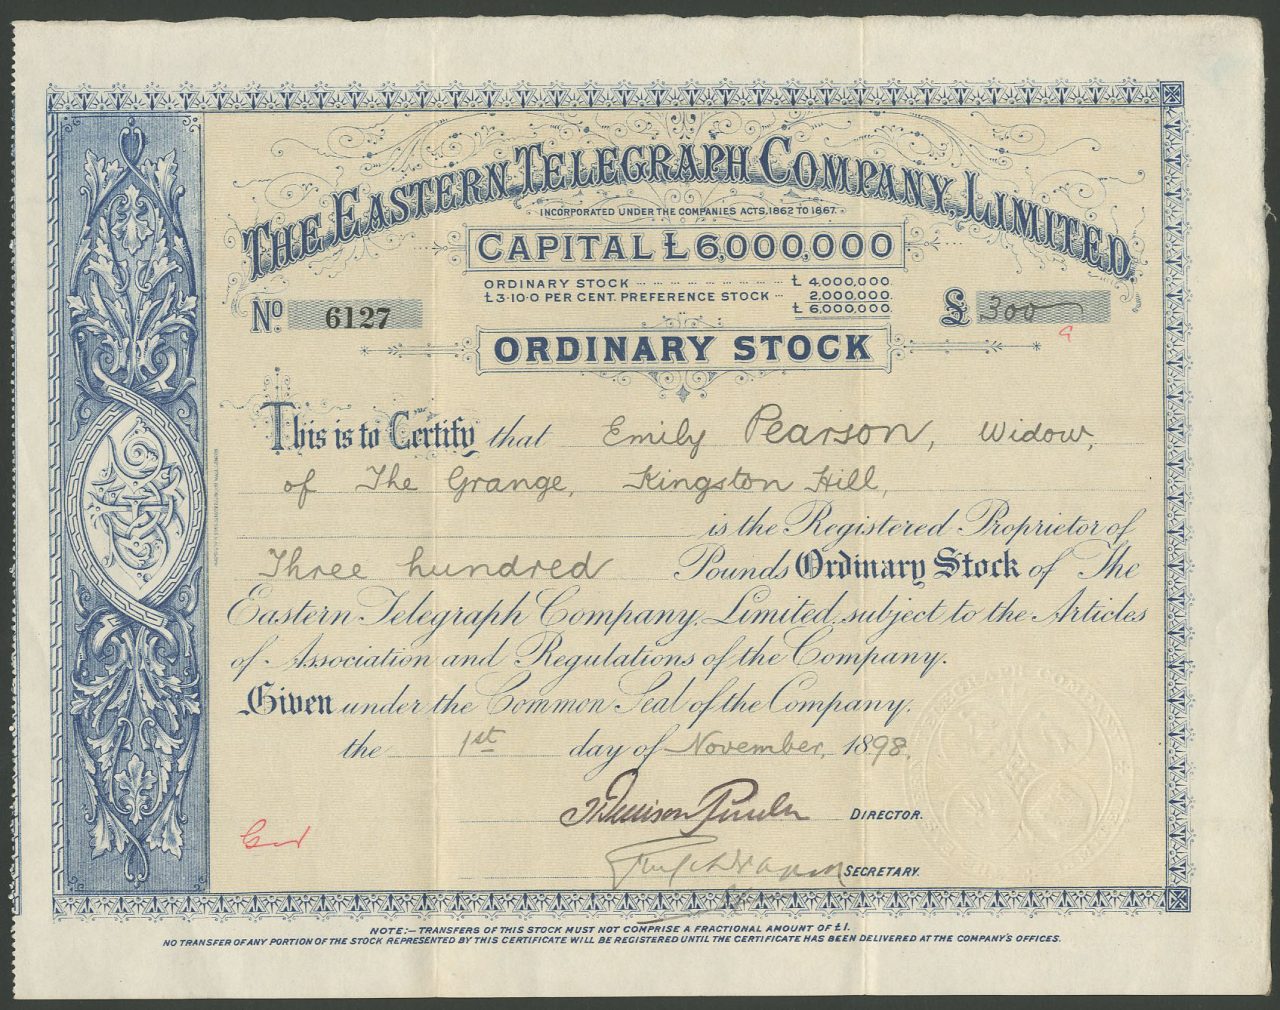 THE EASTERN TELEGRAPH COMPANY, LIMITED
INCORPORATED UNDER THE COMPANIES ACTS, 1862 TO 1867.
CAPITAL £6,000,000
ORDINARY STOCK £ 4,000,000.
£3·10·0 PER CENT. PREFERENCE STOCK 2,000,000.
£ 6,000,000.
No 6127
£ 300
ORDINARY STOCK
This is to Certify that Emily Pearson, Widow,
of The Grange, Kingston Hill,
is the Registered Proprietor of
Three hundred Pounds Ordinary Stock of The
Eastern Telegraph Company, Limited, subject to the Articles
of Association and Regulations of the Company.
Given under the Common Seal of the Company.
the 1st day of November, 1898.
DIRECTOR.
SECRETARY.
NOTE:- TRANSFERS OF THIS STOCK MUST NOT COMPRISE A FRACTIONAL AMOUNT OF £1.
NO TRANSFER OF ANY PORTION OF THE STOCK REPRESENTED BY THIS CERTIFICATE WILL BE REGISTERED UNTIL THE CERTIFICATE HAS BEEN DELIVERED AT THE COMPANY'S OFFICES.